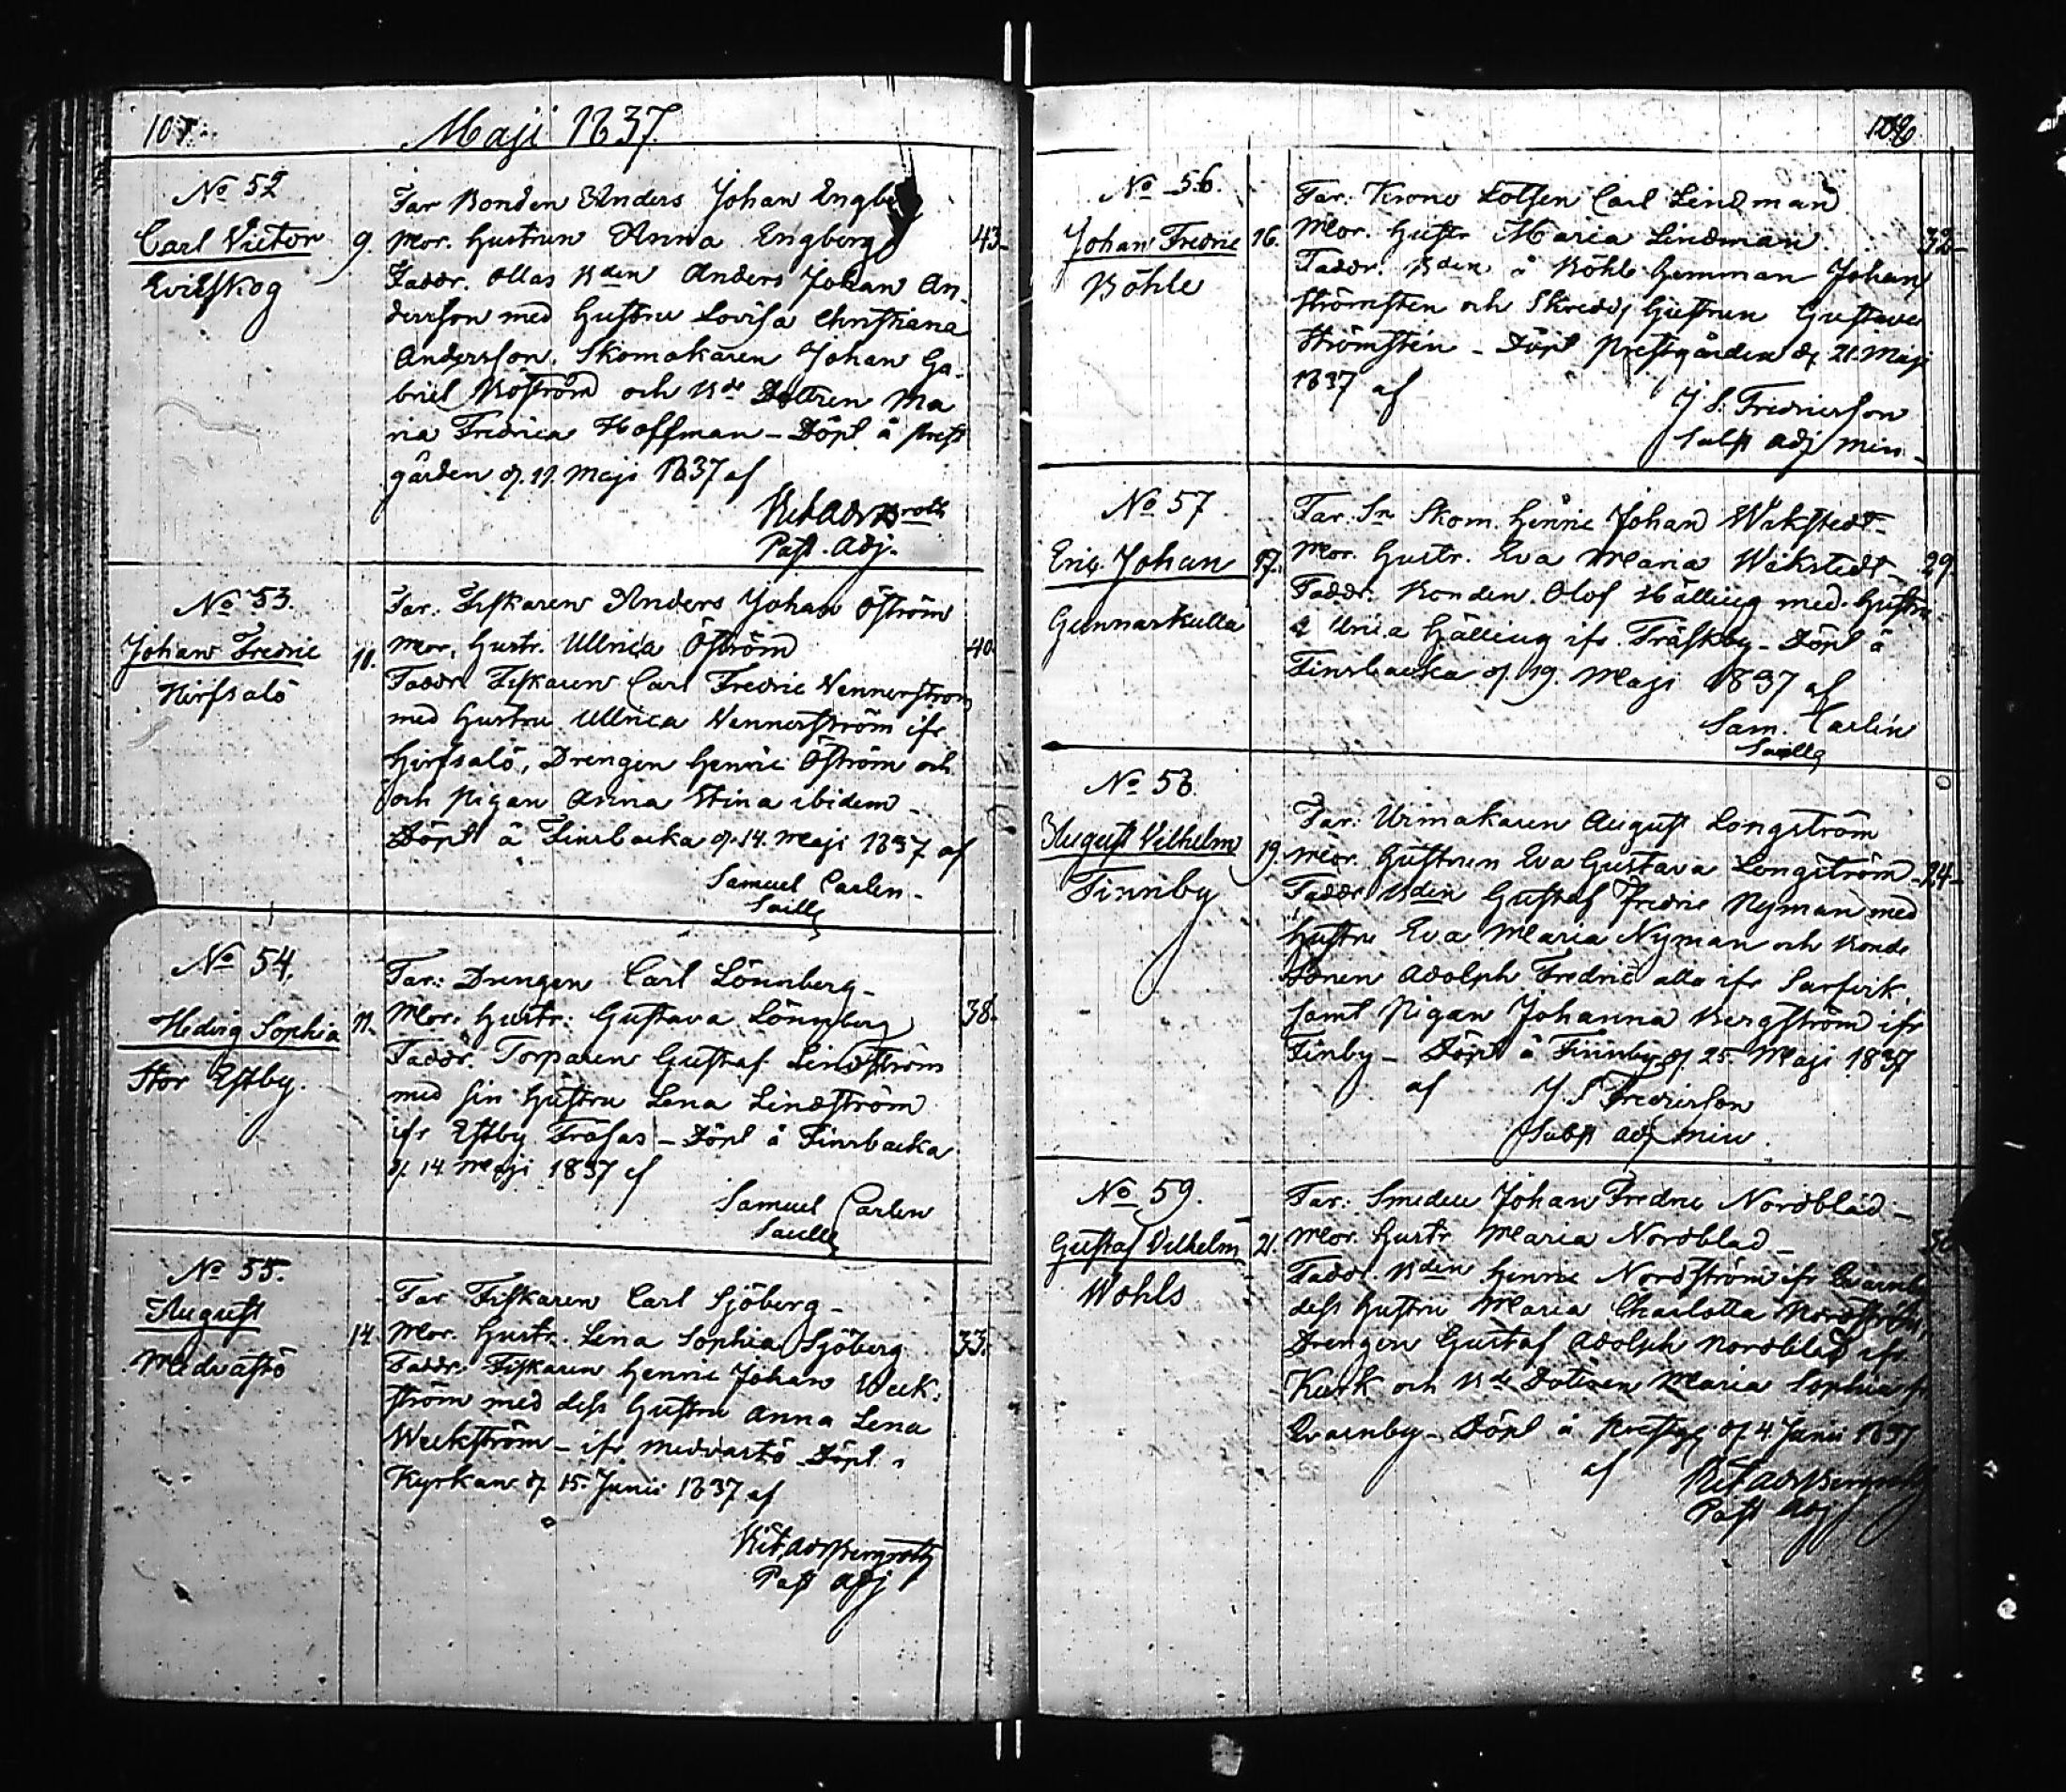 107.
Maji 1837.
No 52
Carl Victor
Evitskog
9.
Far Bonden Anders Johan Engbe
Mor. Hustrun Anna Engberg
43
Faddr. Ollas Bden Anders Johan An-
dersson med Hustru Lovisa Christiana
Andersson. Skomakaren Johan Ga-
briel Boström och Bde Dottren Ma
ria Fredrica Hoffman - Döpt å Prest
gården d. 11. Maji 1837 af
Past. Adj.
No 53.
Johan Fredric
Hirfsalö
11.
Far: Fiskaren Anders Johan Öström
Mor. Hustr. Ullrica Öström
40
Faddr. Fiskaren Carl Fredric Vennerström
med Hustru Ullrica Vennerström ifr
Hirfsalö, Drengen Henric Öström och
och Pigan Anna Stina ibidem
Döpt å Finsbacka d. 14. Maji 1837 af
Samuel Carlen.
Sacell
No 54.
Hedvig Sophia
Stor Estby.
11.
Far: Drengen Carl Lönnberg
Mor. Hustr: Gustava Lönnberg
38.
Faddr. Torparen Gustaf Lindström
med sin Hustru Lena Lindström
ifr Estby Träsas - Döpt å Finsbacka
d. 14 Maji 1837 af
Samuel Carlen
Sacell
No 55.
August
Medvastö
14.
Far Fiskaren Carl Sjöberg
Mor. Hustr. Lena Sophia Sjöberg
33.
Faddr. Fiskaren Henric Johan Weck-
ström med dess Hustru Anna Lena
Weckström - ifr Medvastö Döpt i
Kyrkan d. 15. Junii 1837 af
Past Adj
108
No 56.
Johan Fredric
Böhle
16.
Far. Krono Lotsen Carl Lindman
Mor. Hustr Maria Lindman
32
Faddr. Bden å Böhle Hemman Johan
Strömsten och Hustrun Gustava
Strömsten - Döpt Prestgården d. 21. Maji
1837 af
J S. Fredricson
Subst Adj Min
No 57
Eric Johan
Gunnarkulla
17.
Far. Sn Skom. Henric Johan Wikstedt
Mor. Hustr. Eva Maria Wikstedt
29.
Faddr. Bonden Olof Hälling med Hustru
Ulrica Hälling ifr. Träskby - Döpt å
Finsbacka d. 19. Maji 1837 af
Sam. Carlén
Sacell
No 58.
August Vilhelm
Finnby
19.
Far: Urmakaren August Longström
Mor. Hustrun Eva Gustava Longström
24
Faddr Bden Gustaf Fredric Nyman med
Hustru Eva Maria Nyman och Bonde
Sonen Adolph Fredric alla ifr Sarfvik
samt Pigan Johanna Bergström ifr
Finby - Döpt å Finnby d. 25 Maji 1837
af J S Fredricson
Subst Adj Min.
No 59.
Gustaf Vilhelm
Wohls
21.
Far: Smeden Johan Fredric Nordblad
Mor. Hustr Maria Nordblad
Faddr. Bden Henric Nordström ifr Qvarnby
dess Hustru Maria Charlotta Nordström,
Drengen Gustaf Adolph Nordblad ifr
Kurk och Bde Dottren Maria Sophia fr
Qvarnby - Döpt å Prestg d. 4 Junii 1837
af
Past Adj